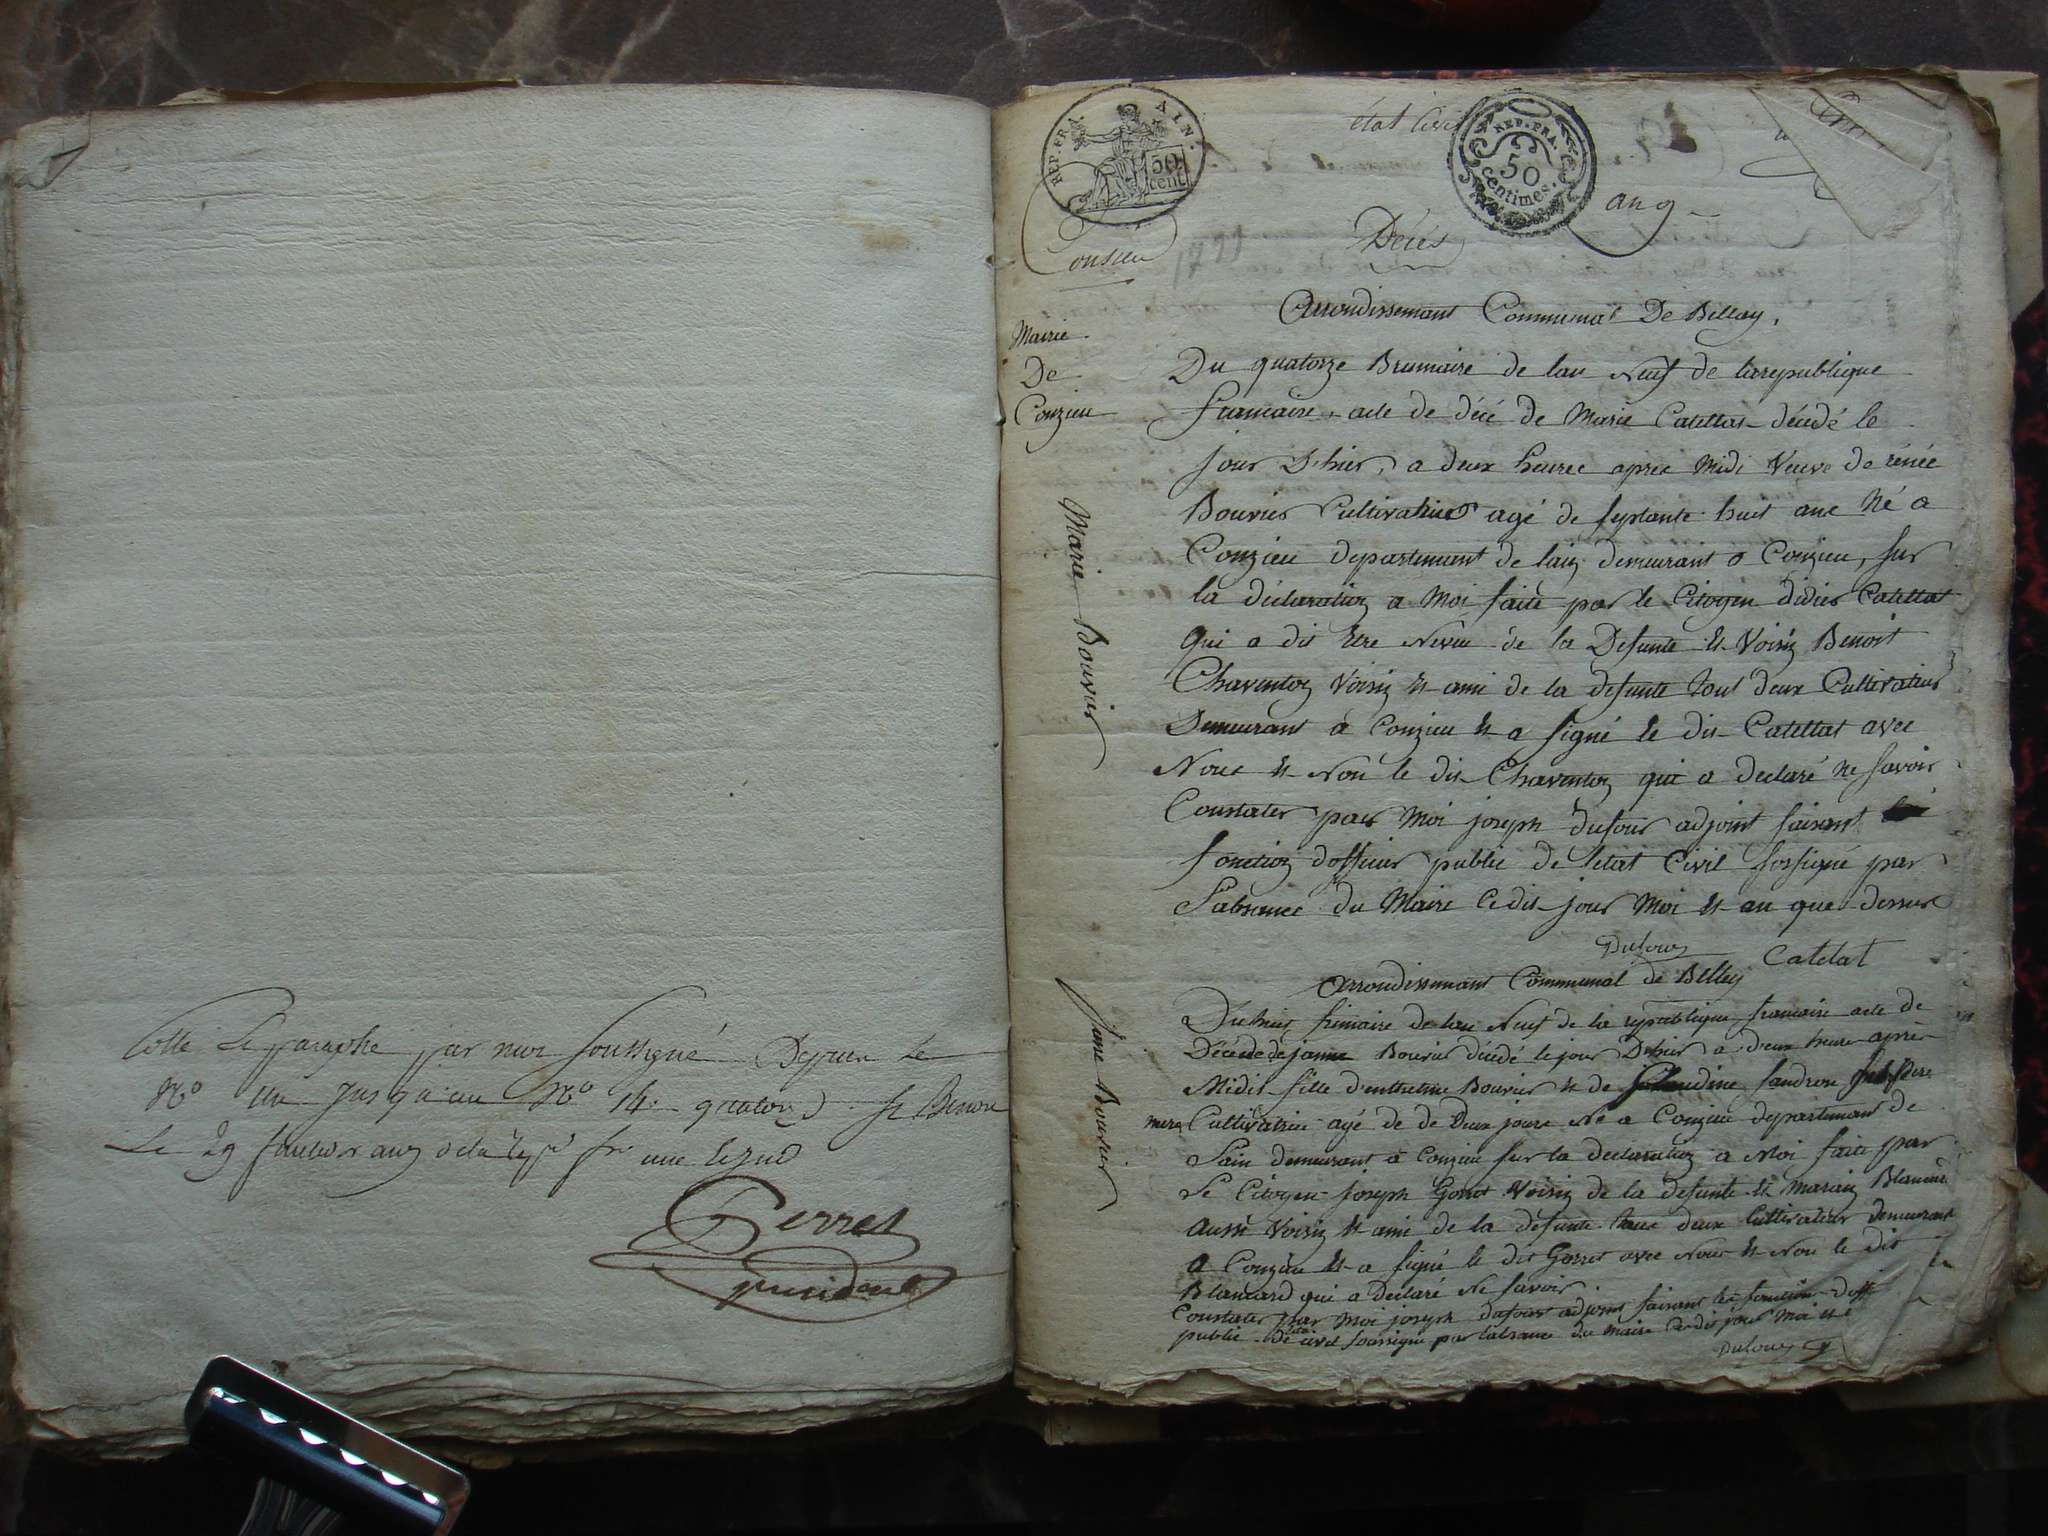 Cotté & paraphé par moi soussigné Depuis le
No un jusqu'au No 14. quatorze St Benoit
Le 29 an 8 de la rep. fr. une
Perret
president
REP. FRA.
AIN.
50
cent
état civil
REP. FRA.
50
centimes.
an 9
Conzieu
1799
Décès
Mairie
De
Conzieu
Arrondissemant Communal De Bellay,
Du quatorze Brumaire de lan Neuf de larepublique
francaise, acte de décé de Marie Catellat décédé le
jour Dhier, a deux heures apres Midi Veuve de rénée
Bouvier Cultivatrice agé de seplante huit ans Né a
Conzieu departement de lain demeurant a Conzieu, sur
la déclaration a Moi faite par le Citoyen didier Catellat
qui a dit etre Neveu de la Defunte et Voisin Benoit
Chaventon Voisin et ami de la defunte tous deux Cultivateur
Demeurant a Conzieu et a signé le dit Catellat avec
Nous et Non le dit Chaventon qui a declaré ne savoir
Constater par Moi joseph dufour adjoint faisant
fonction dofficier public de letat Civil sossigné par
labsance du Maire ledit jour Moi et an que dessus
Marie Bouvier
Dufour Catelat
arrondissemant Communal de Belley
Du huit frimaire de lan Neuf de la republique francaise acte de
Décé de janne Bouvier décédé le jour Dhier a deux heure après
Midit fille Bouvier et de Claudine
mere Cultivatrice agé de de Deux jours Né a Conzieu departemant de
Lain demeurant a Conzieu sur la declaration a Moi faite par
Le Citoyen joseph Gorret Voisin de la defunte et Blancard
aussi Voisin et ami de la defunte tous deux Cultivateur demeurant
a Conzieu et a signé le dit Gorret avec Nous et Non le dit
Blancard qui a déclaré Ne savoir
Constater par Moi joseph dufour adjoint faisant les fonction doffi
public de létat civil soussigné par labsance du maire ledit jour Moi et
jane Bouvier
Dufour